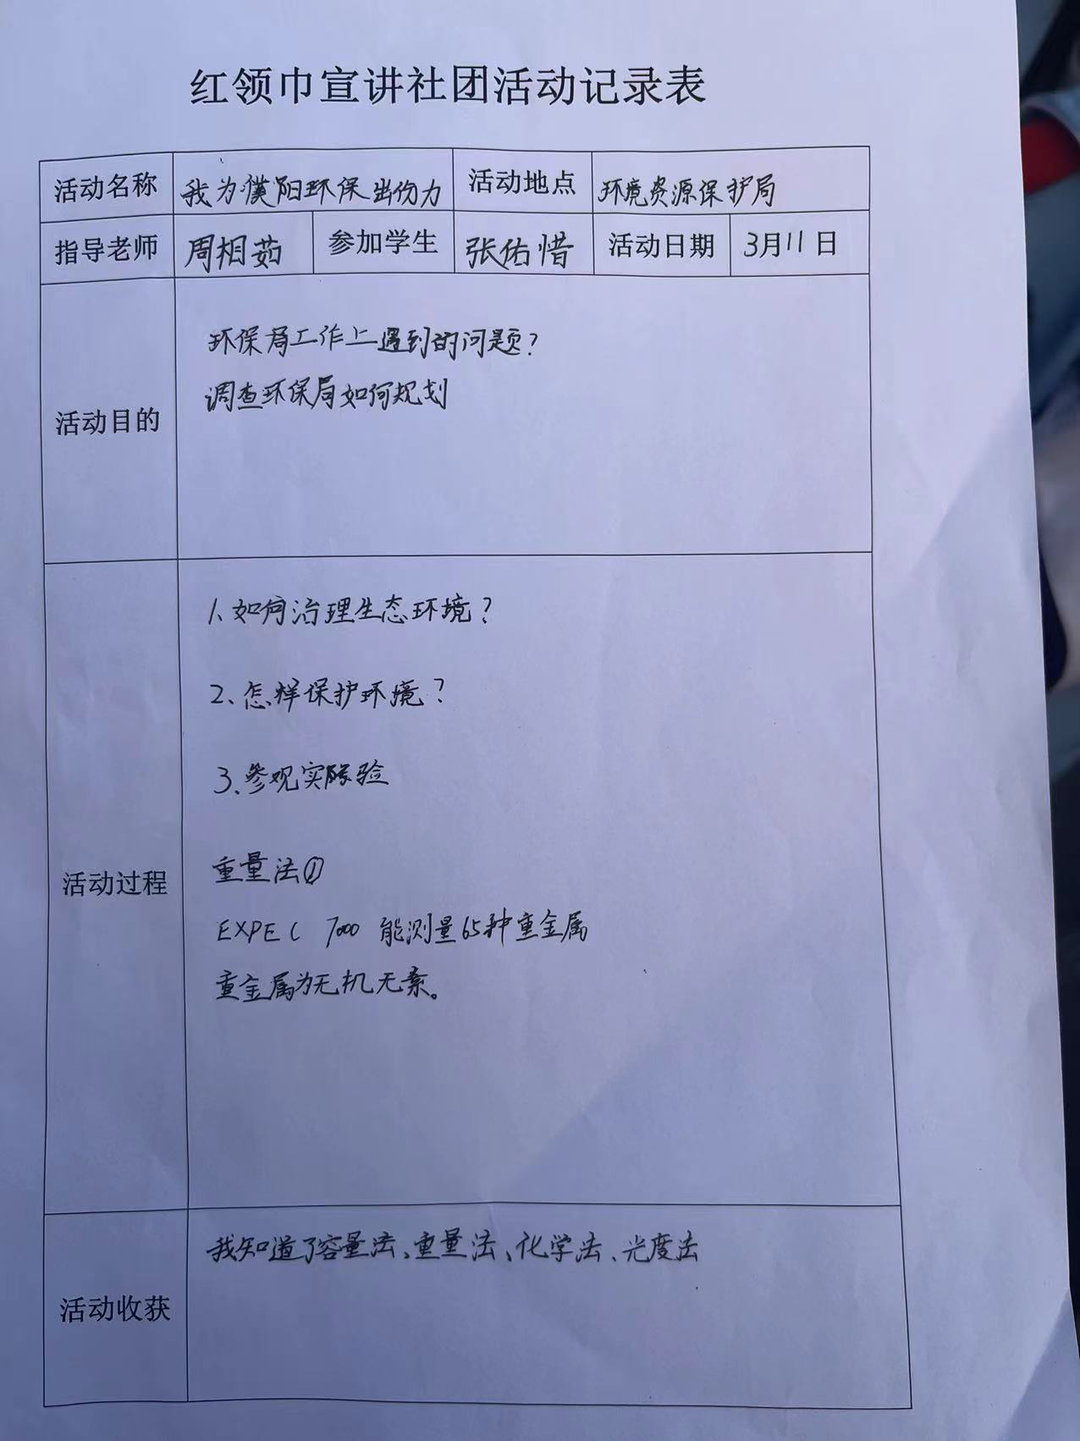 红领巾宣讲社团活动记录表
活动名称 我为濮阳环保出份力 活动地点 环境资源保护局
指导老师 周相茹 参加学生 张佑惜 活动日期 3月11日
环保局工作上遇到的问题?
调查环保局如何规划
活动目的
1、如何治理生态环境?
2、怎样保护环境?
3、参观实际验
重量法①
活动过程
EXPEC 7000 能测量65种重金属
重金属为无机元素。
我知道了容量法、重量法、化学法、光度法
活动收获